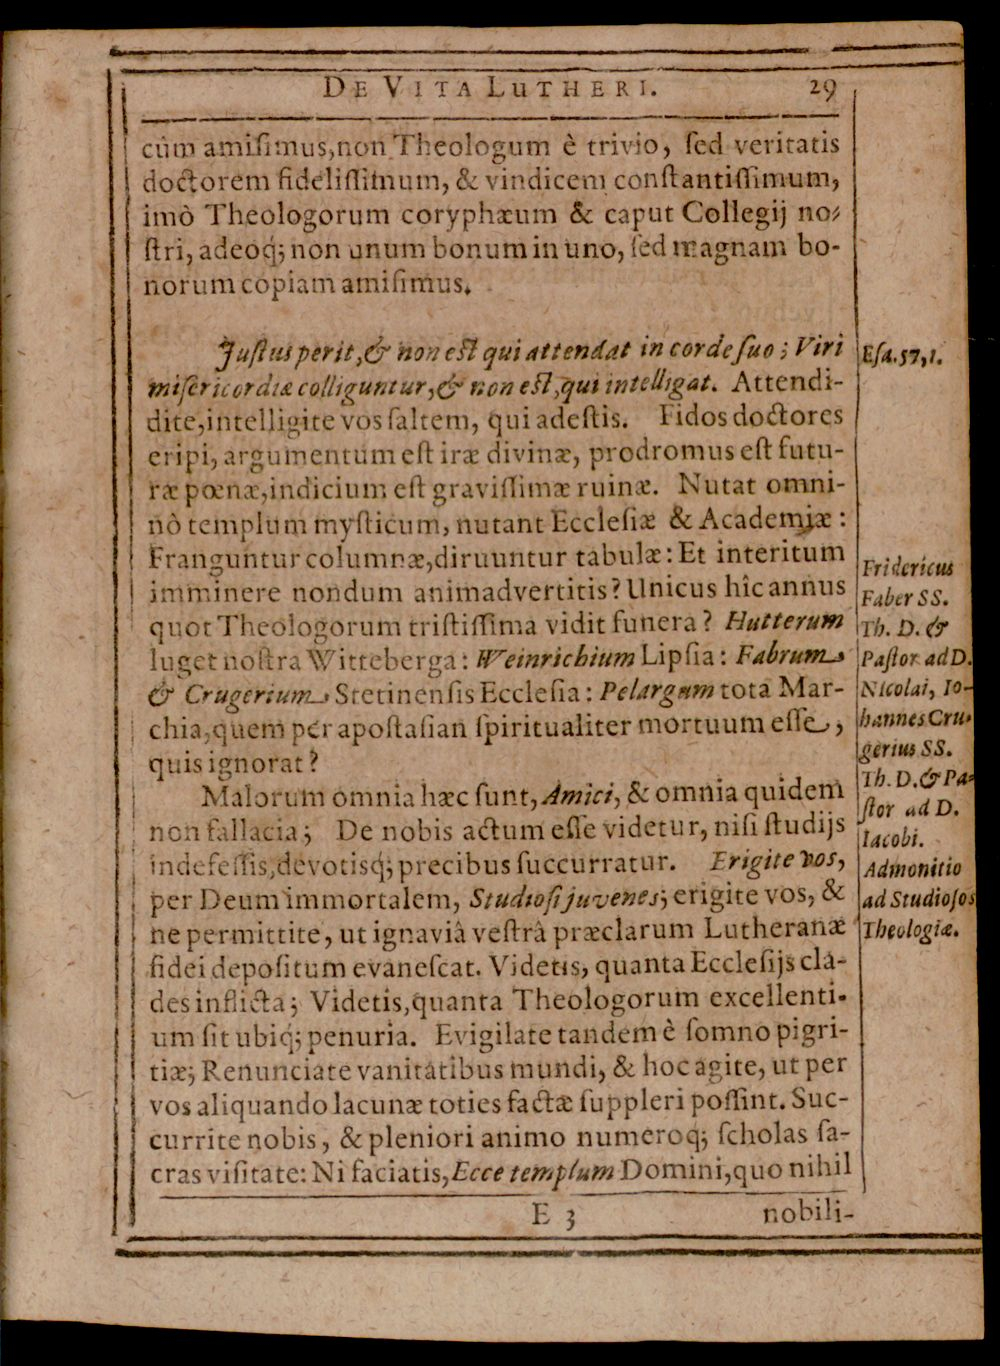 DE VITA LUTHERI. 29
cùm amiſimus, non Theologum è trivio, ſed veritatis
doctorem fideliſſimum, & vindicem conſtantiſſimum,
imò Theologorum coryphæum & caput Collegij no-
ſtri, adeoq; non unum bonum in uno, ſed magnam bo-
norum copiam amiſimus.
Juſtus perit, & non eſt qui attendat in corde ſuo; Viri
miſericordiæ colliguntur, & non eſt, qui intelligat. Attendi-
dite, intelligite vos ſaltem, qui adeſtis. Fidos doctores
eripi, argumentum eſt iræ divinæ, prodromus eſt futu-
ræ pœnæ, indicium eſt graviſſimæ ruinæ. Nutat omni-
nò templum myſticum, nutant Eccleſiæ & Academiæ:
Franguntur columnæ, diruuntur tabulæ: Et interitum
imminere nondum animadvertitis? Unicus hîc annus
quot Theologorum triſtiſſima vidit funera? Hutterum
luget noſtra Witteberga: Weinrichium Lipſia: Fabrum
& Crugerium Stetinenſis Eccleſia: Pelargum tota Mar-
chia, quem per apoſtaſian ſpiritualiter mortuum eſſe,
quis ignorat?
Malorum omnia hæc ſunt, Amici, & omnia quidem
non fallacia; De nobis actum eſſe videtur, niſi ſtudijs
indefeſſis, devotisq; precibus ſuccurratur. Erigite vos,
per Deum immortalem, Studioſi juvenes; erigite vos, &
ne permittite, ut ignaviâ veſtrâ præclarum Lutheranæ
fidei depoſitum evaneſcat. Videtis, quanta Eccleſijs cla-
des inflicta; Videtis, quanta Theologorum excellenti-
um ſit ubiq; penuria. Evigilate tandem è ſomno pigri-
tiæ; Renunciate vanitatibus mundi, & hoc agite, ut per
vos aliquando lacunæ toties factæ ſuppleri poſſint. Suc-
currite nobis, & pleniori animo numeroq; ſcholas ſa-
cras viſitate: Ni faciatis, Ecce templum Domini, quo nihil
E 3 nobili-
Eſa. 57, 1.
Fridericus
Faber SS.
Th. D. &
Paſtor ad D.
Nicolai, Io-
hannes Cru-
gerius SS.
Th. D. & Pa-
ſtor ad D.
Iacobi.
Admonitio
ad Studioſos
Theologiæ.